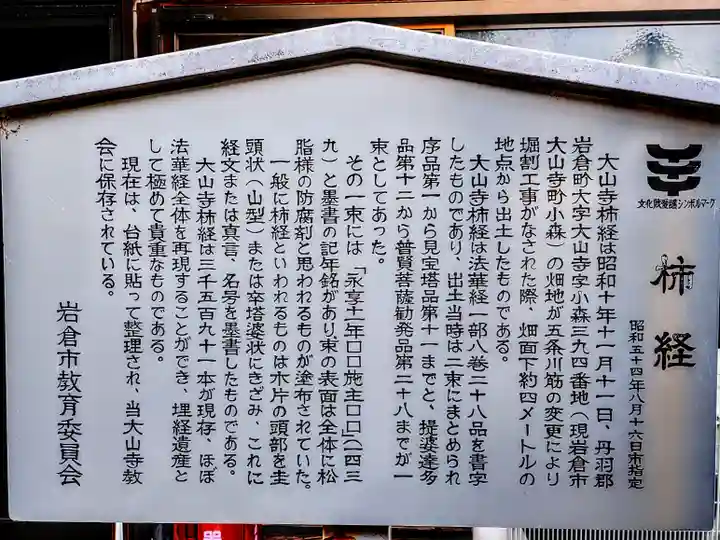 文化財愛護シンボルマーク
柿経
昭和五十四年八月十六日市指定
大山寺柿経は昭和十年十一月十一日、丹羽郡
岩倉町大字大山寺字小森三九四番地(現岩倉市
大山寺町小森)の畑地が五条川筋の変更により
堀割工事がなされた際、畑面下約四メートルの
地点から出土したものである。
大山寺柿経は法華経一部八巻二十八品を書字
したものであり、出土当時は二束にまとめられ
序品第一から見宝塔品第十一までと、提婆達多
品第十二から普賢菩薩勧発品第二十八までが一
束としてあった。
その一束には「永享十一年口口施主口口」(一四三
九)と墨書の記年銘があり束の表面は全体に松
脂様の防腐剤と思われるものが塗布されていた。
一般に柿経といわれるものは木片の頭部を圭
頭状(山型)または卒塔婆状にきざみ、これに
経文または真言、名号を墨書したものである。
大山寺柿経は三千五百九十一本が現存、ほぼ
法華経全体を再現することができ、埋経遺産と
して極めて貴重なものである。
現在は、台紙に貼って整理され、当大山寺教
会に保存されている。
岩倉市教育委員会